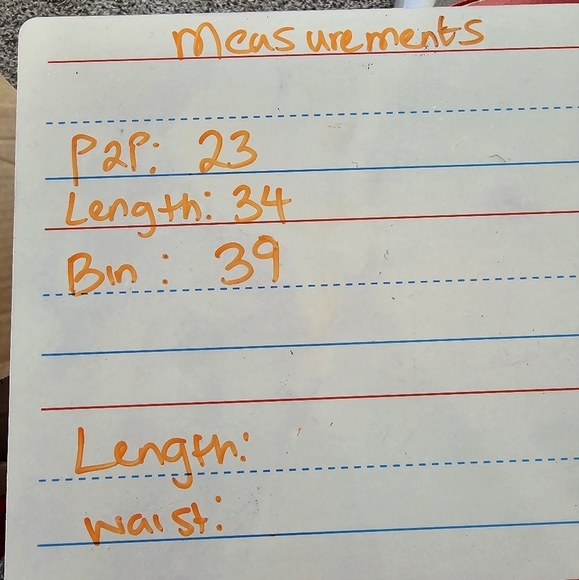 Measurements
P2P: 23
Length: 34
Bin: 39
Length:
waist: